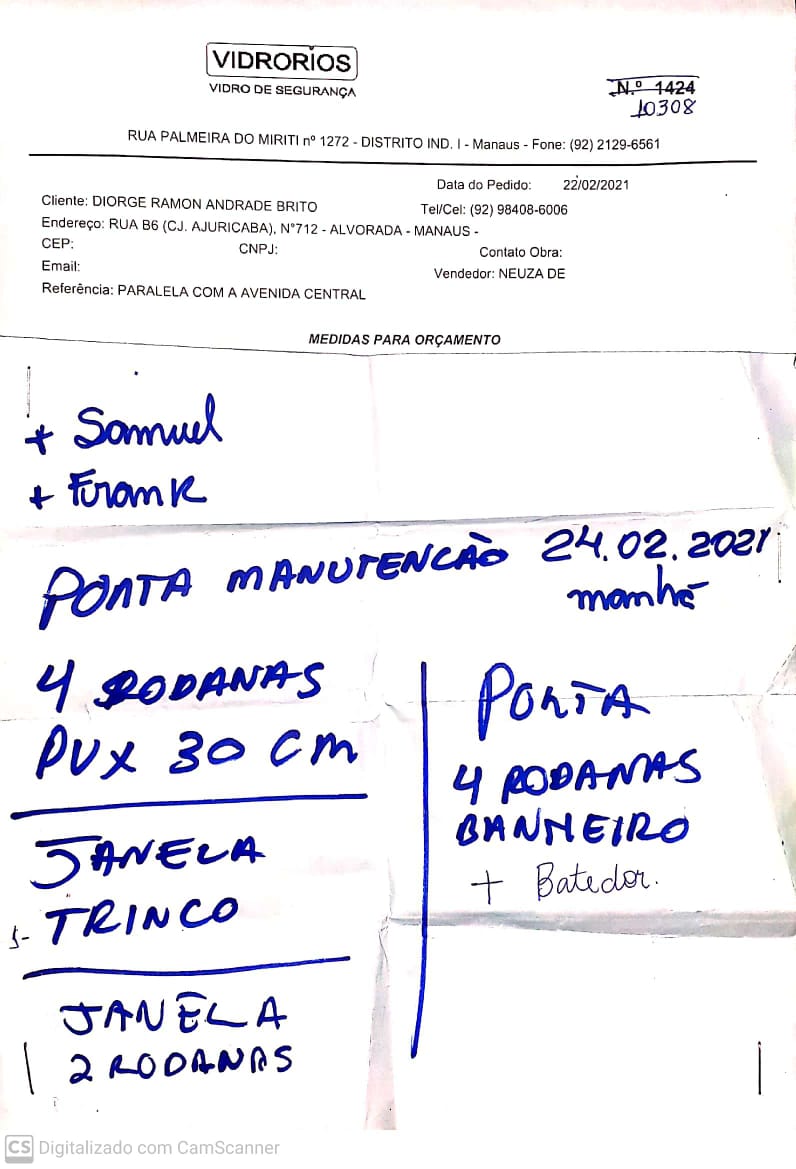 VIDRORIOS
VIDRO DE SEGURANÇA
N.º 1424
10308
RUA PALMEIRA DO MIRITI nº 1272 - DISTRITO IND. I - Manaus - Fone: (92) 2129-6561
Data do Pedido: 22/02/2021
Cliente: DIORGE RAMON ANDRADE BRITO
Tel/Cel: (92) 98408-6006
Endereço: RUA B6 (CJ. AJURICABA), N°712 - ALVORADA - MANAUS -
CEP: CNPJ: Contato Obra:
Email: Vendedor: NEUZA DE
Referência: PARALELA COM A AVENIDA CENTRAL
MEDIDAS PARA ORÇAMENTO
+ Samuel
+ Frank
PORTA MANUTENCÃO 24.02.2021
manhã
4 RODANAS
PUX 30 CM
JANELA
5- TRINCO
JANELA
2 RODANAS
PORTA
4 RODANAS
BANHEIRO
+ Batedor.
CS Digitalizado com CamScanner